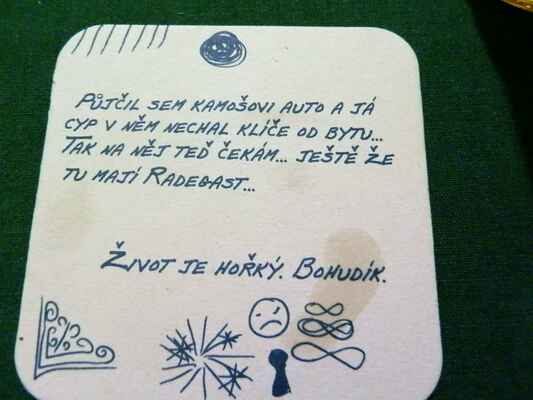 Půjčil sem kamošovi auto a já
cyp v něm nechal klíče od bytu...
Tak na něj teď čekám... ještě že
tu mají Radegast...
Život je hořký. Bohudík.